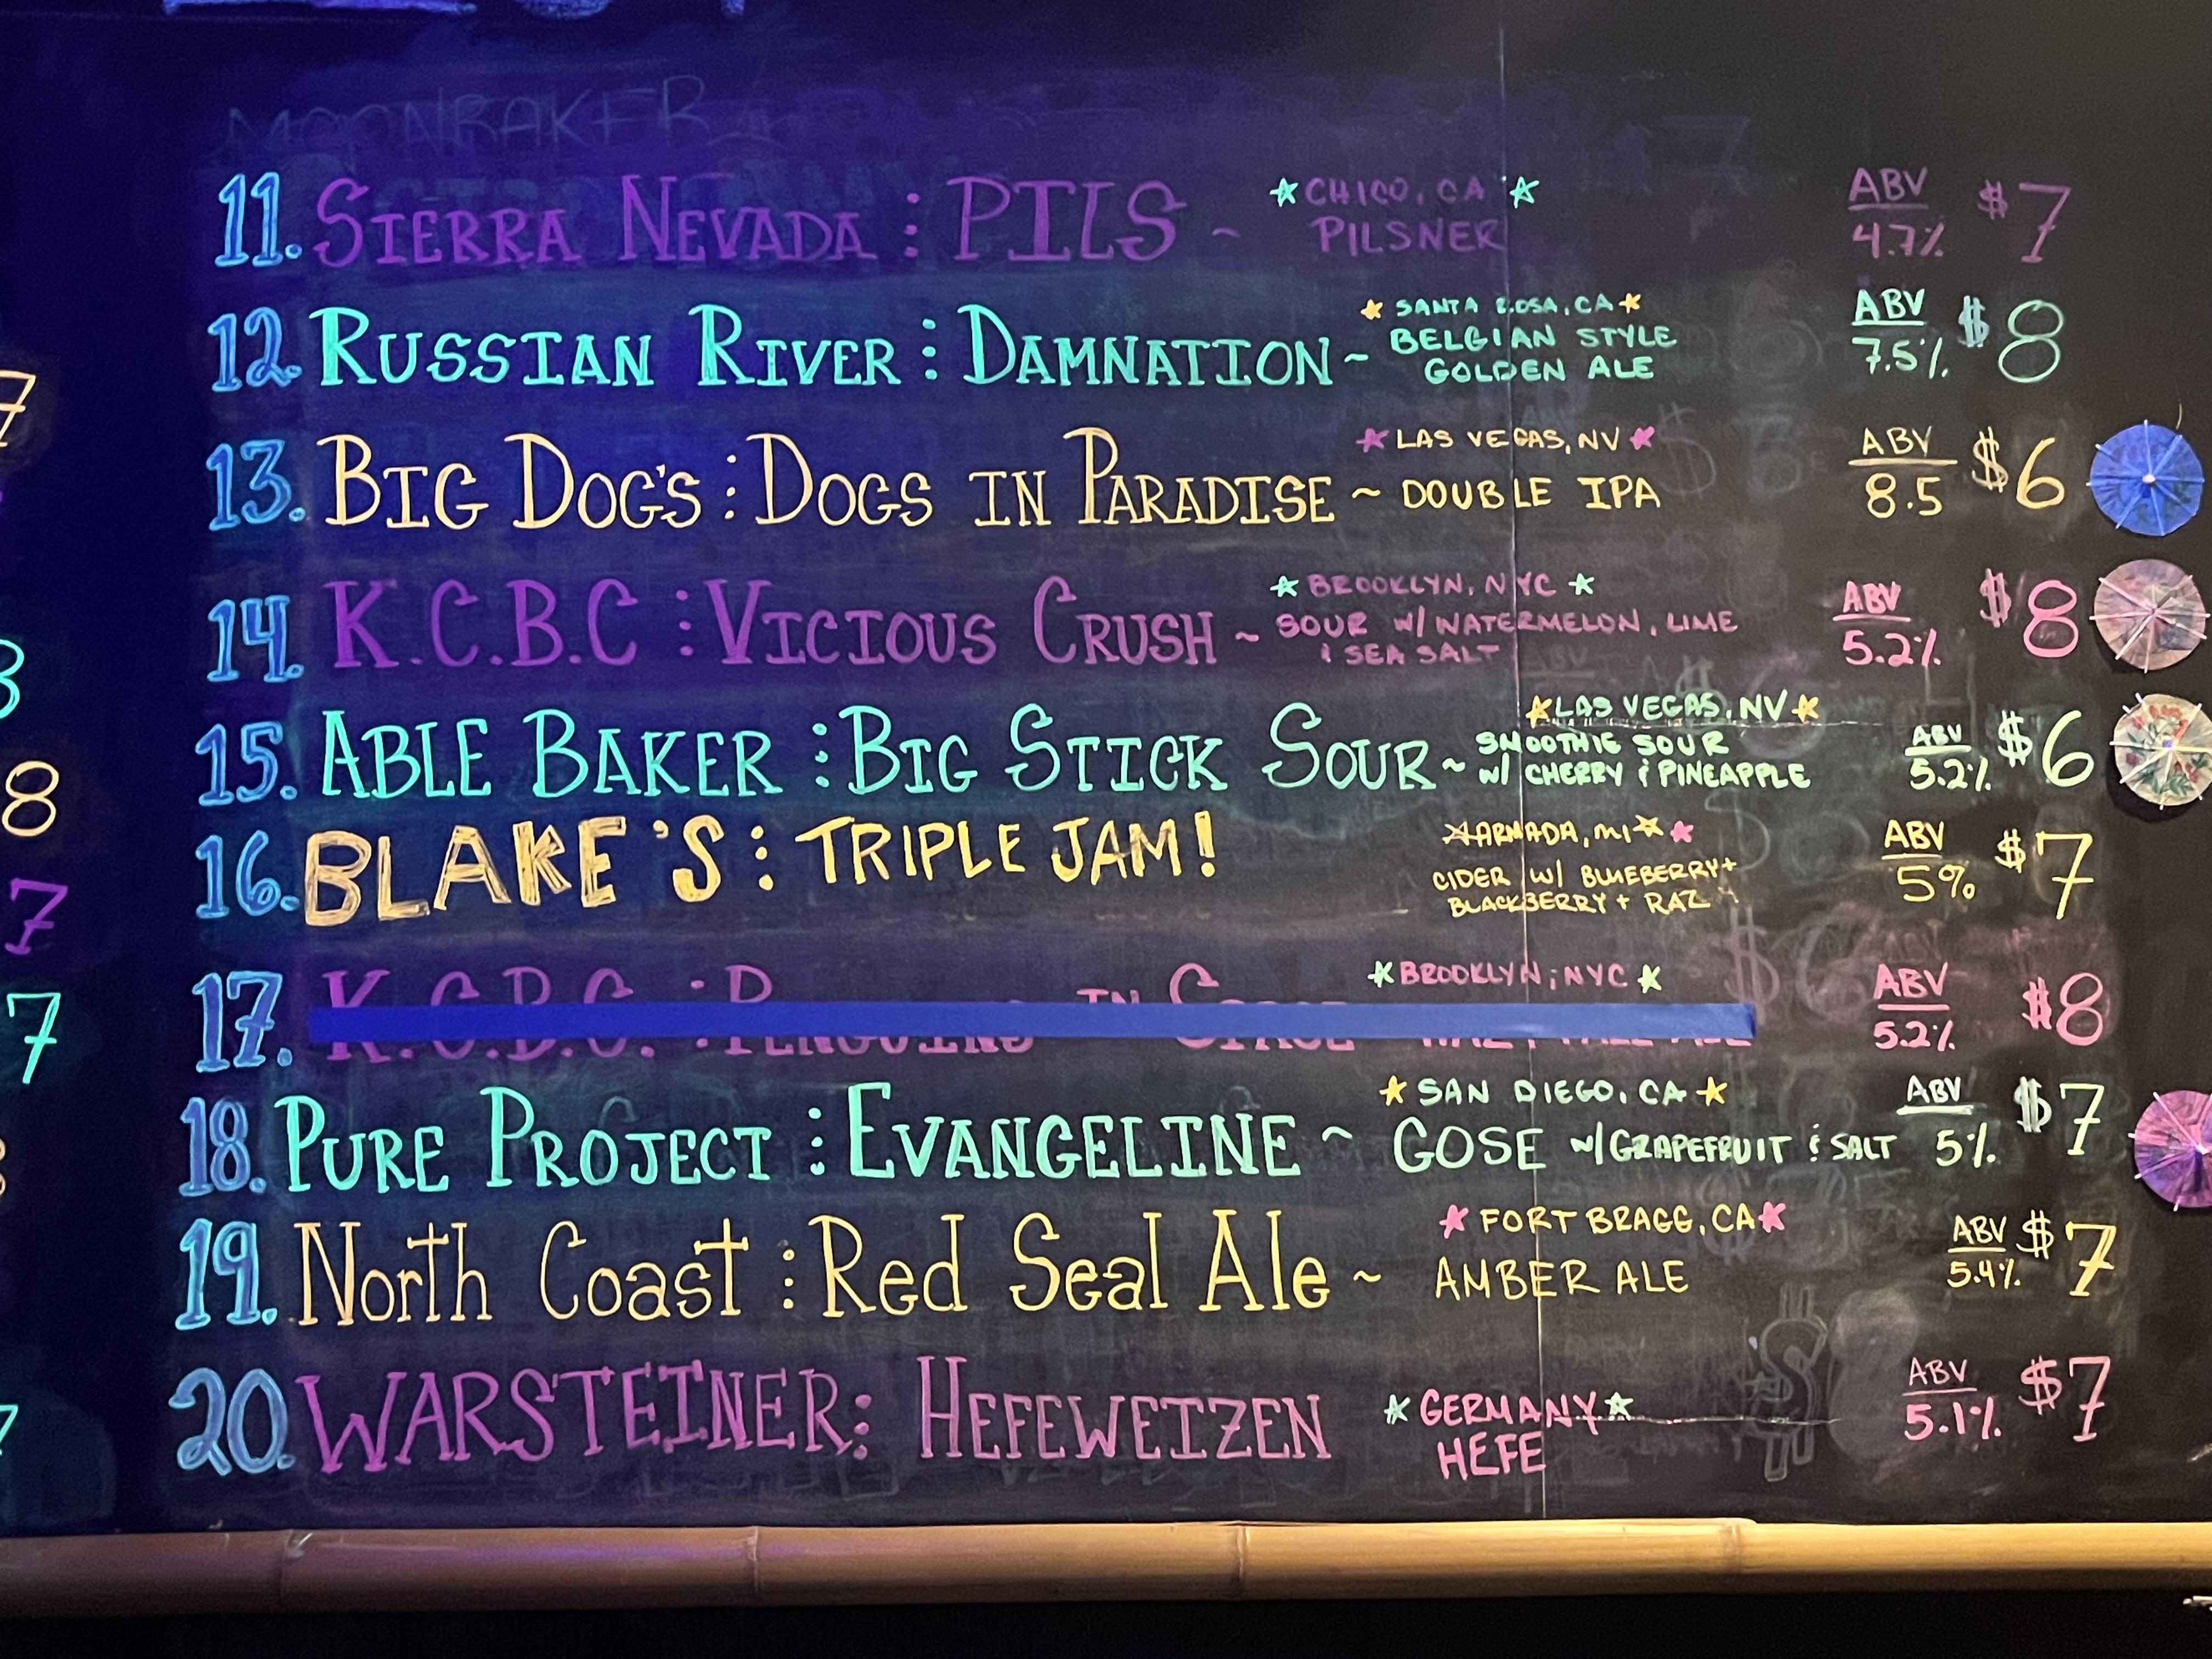 11. SIERRA NEVADA : PILS ~ CHICO, CA
PILSNER
ABV
4.7%
$7
12. RUSSIAN RIVER : DAMNATION ~ SANTA ROSA, CA
BELGIAN STYLE
GOLDEN ALE
ABV
7.5%
$8
13. BIG DOG'S : DOGS IN PARADISE ~ LAS VEGAS, NV
DOUBLE IPA
ABV
8.5
$6
14. K.C.B.C : VICIOUS CRUSH ~ BROOKLYN, NYC
SOUR W/ WATERMELON, LIME
& SEA SALT
ABV
5.2%
$8
15. ABLE BAKER : BIG STICK SOUR ~ LAS VEGAS, NV
SMOOTHIE SOUR
W/ CHERRY & PINEAPPLE
ABV
5.2%
$6
16. BLAKE'S : TRIPLE JAM! ARMADA, MI
CIDER W/ BLUEBERRY +
BLACKBERRY + RAZ
ABV
5%
$7
17. K.C.B.C. : PENGUINS IN SPACE BROOKLYN, NYC
ABV
5.2%
$8
18. PURE PROJECT : EVANGELINE ~ SAN DIEGO, CA
GOSE W/ GRAPEFRUIT & SALT
ABV
5%
$7
19. North Coast : Red Seal Ale ~ FORT BRAGG, CA
AMBER ALE
ABV
5.4%
$7
20. WARSTEINER : HEFEWEIZEN GERMANY
HEFE
ABV
5.1%
$7
7
8
7
7